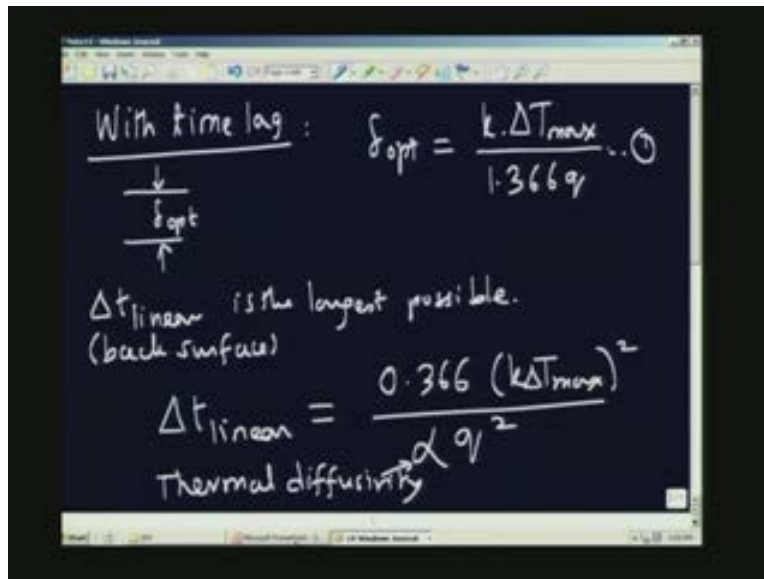 With time lag : δopt = k.ΔTmax / 1.366q ..①
δopt
Δt linear is the longest possible.
(back surface)
Δt linear = 0.366 (kΔTmax)² / α q²
Thermal diffusivity